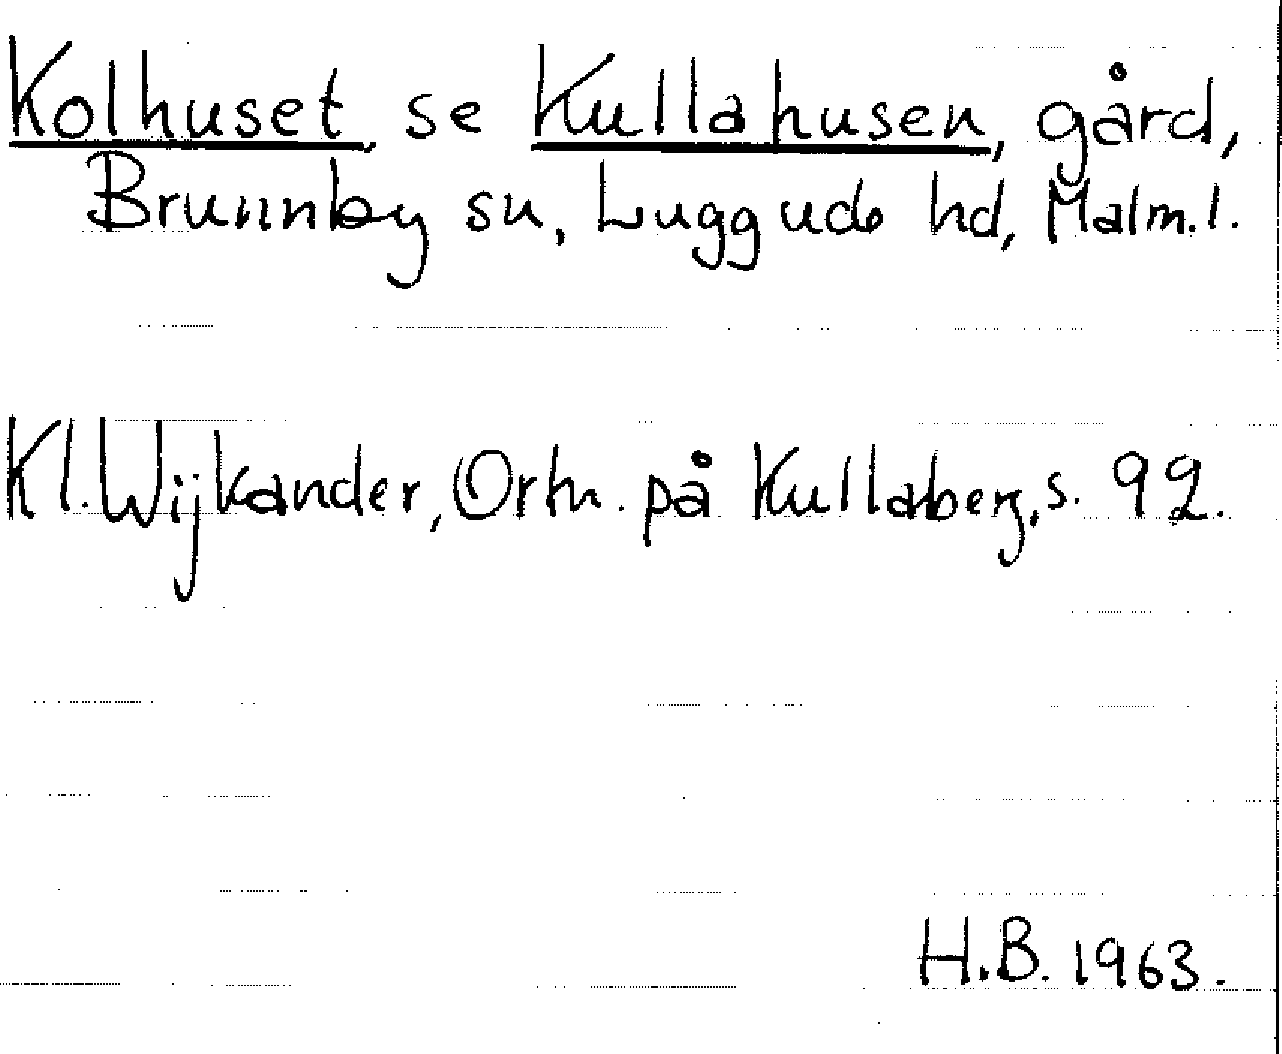 Kolhuset, se Kullahusen, gård,
Brunnby sn, Luggude hd, Malm.l.
Kl. Wijkander, Ortn. på Kullaberg, s. 92.
H.B. 1963.